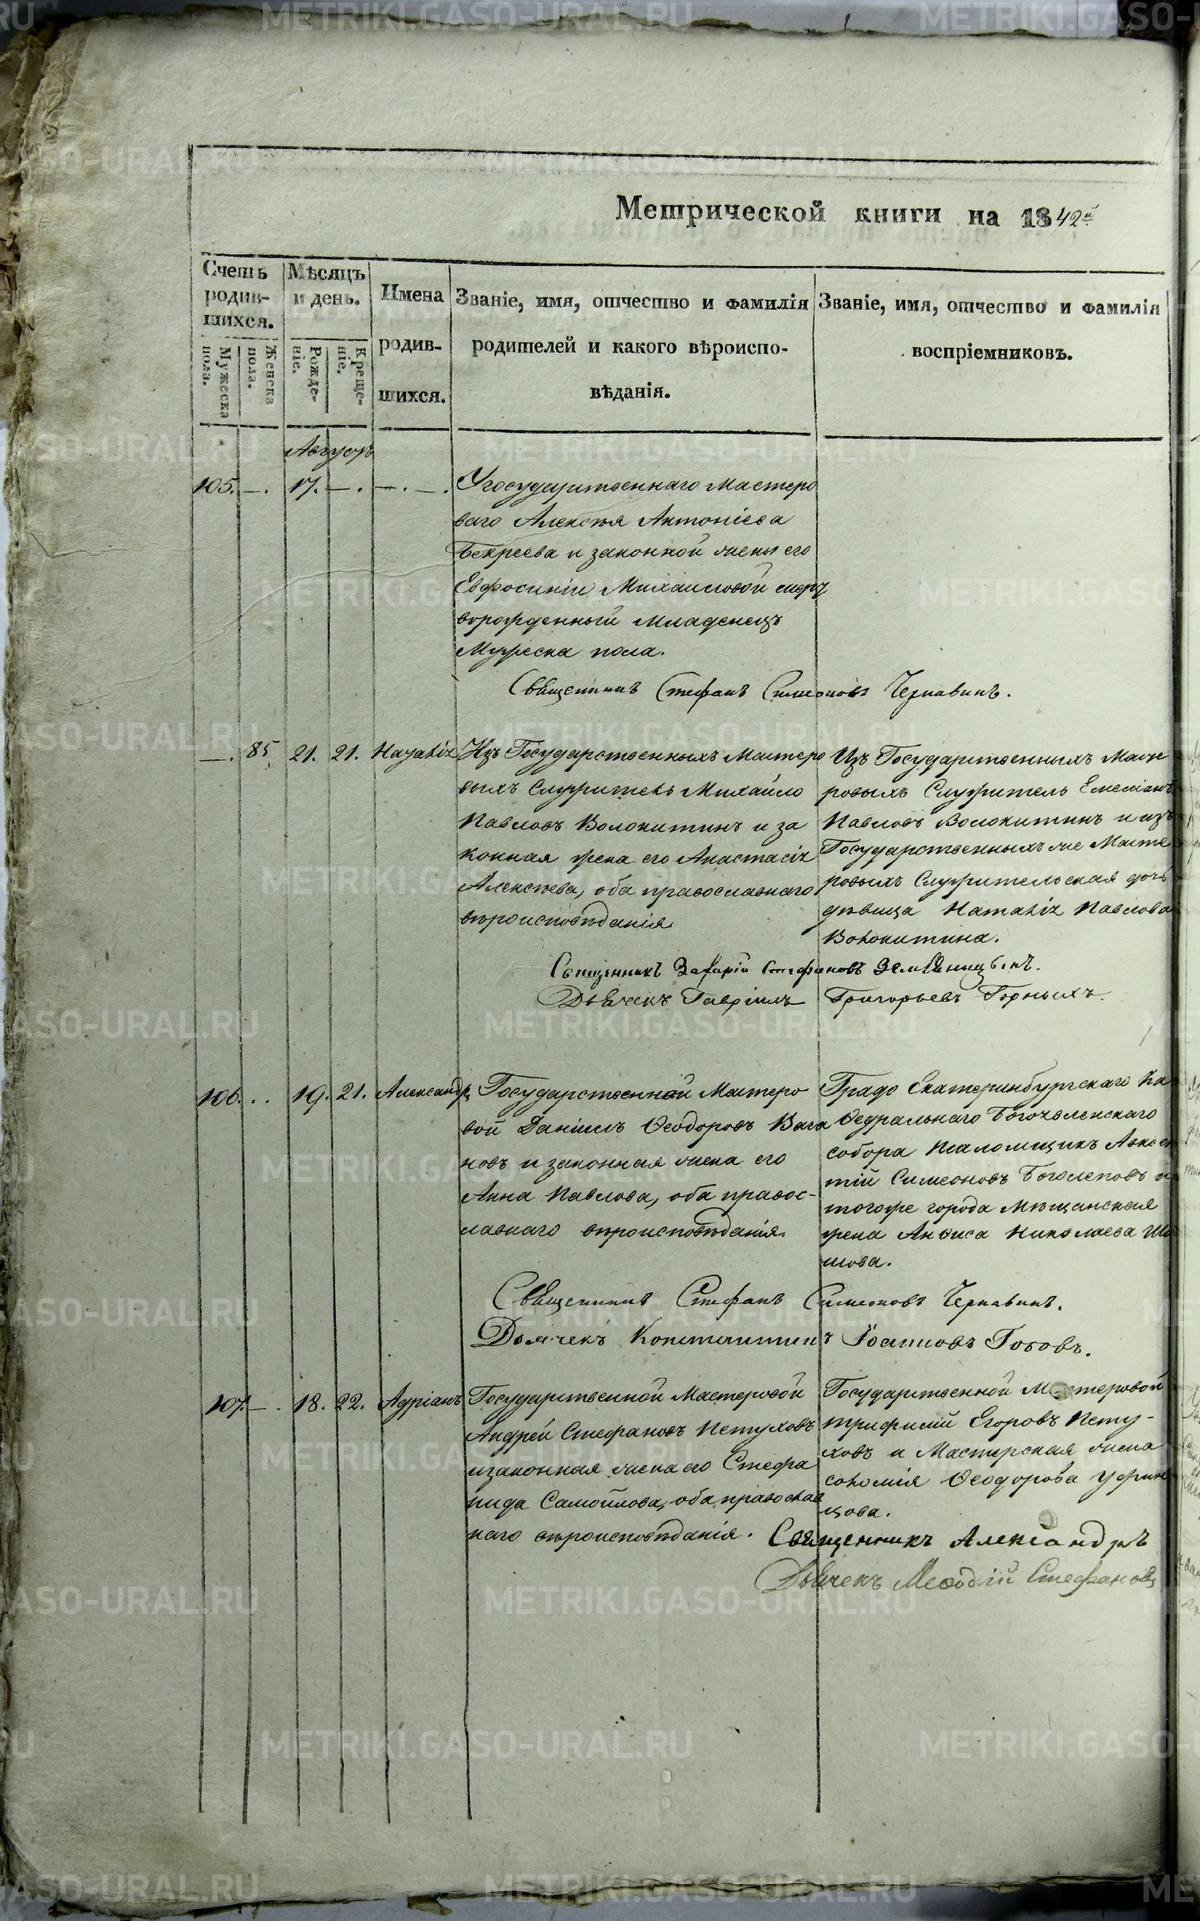 METRIKI.GASO-URAL.RU
Метрической книги на 1842й
Счетъ родив-шихся.
Мужеска пола.
Женска пола.
Мѣсяцъ и день.
Рожде-ніе.
Креще-ніе.
Имена родив-шихся.
Званіе, имя, отчество и фамилія
родителей и какого вѣроиспо-
вѣданія.
Званіе, имя, отчество и фамилія
воспріемниковъ.
Августъ
105. —. 17. —. —. —.
Угосударственнаго Мастеро
ваго Алексѣя Антоніева
Бекреева и законной жены его
Евфосиніи Михаиловой мерт
ворожденный младенецъ
Мужеска пола.
Священникъ Стефанъ Симеоновъ Чернавинъ.
—. 85. 21. 21. Наталія
Изъ Государственныхъ Мастеро
выхъ Служитель Михайло
Павловъ Волокитинъ и за
конная жена его Анастасія
Алексѣева, оба православнаго
вѣроисповѣданія
Изъ Государственныхъ Масте
ровыхъ Служитель Емеліанъ
Павловъ Волокитинъ и изъ
Государственныхъ же Масте
ровыхъ Служительская дочь
дѣвица Наталія Павлова
Волокитина.
Священникъ Захарій Стефановъ Земляницынъ.
Дьячекъ Гавріилъ Григорьевъ Горныхъ.
106. . . 19. 21. Александръ
Государственной Мастеро
вой Даніилъ Ѳеодоровъ Вага
новъ и законная жена его
Анна Павлова, оба правос-
лавнаго вѣроисповѣданія.
Градо Екатеринбургскаго Ка
ѳедральнаго Богоявленскаго
собора Псаломщикъ Авксен
тій Симеоновъ Боголеповъ и
тогоже города Мѣщанская
жена Анѳиса Николаева
Священникъ Стефанъ Симеоновъ Чернавинъ.
Дьячекъ Константинъ Іоанновъ
107. —. 18. 22. Адріанъ
Государственной Мастеровой
Андрей Стефановъ Петуховъ
изаконная жена его Стефа
нида Самойлова, оба православ
наго вѣроисповѣданія.
Государственной Мастеровой
Трифилій Егоровъ Пету-
ховъ и Мастерская жена
Соломія Ѳеодорова Уфин
цова.
Священникъ Александръ
Дьячекъ Меѳодій Стефановъ